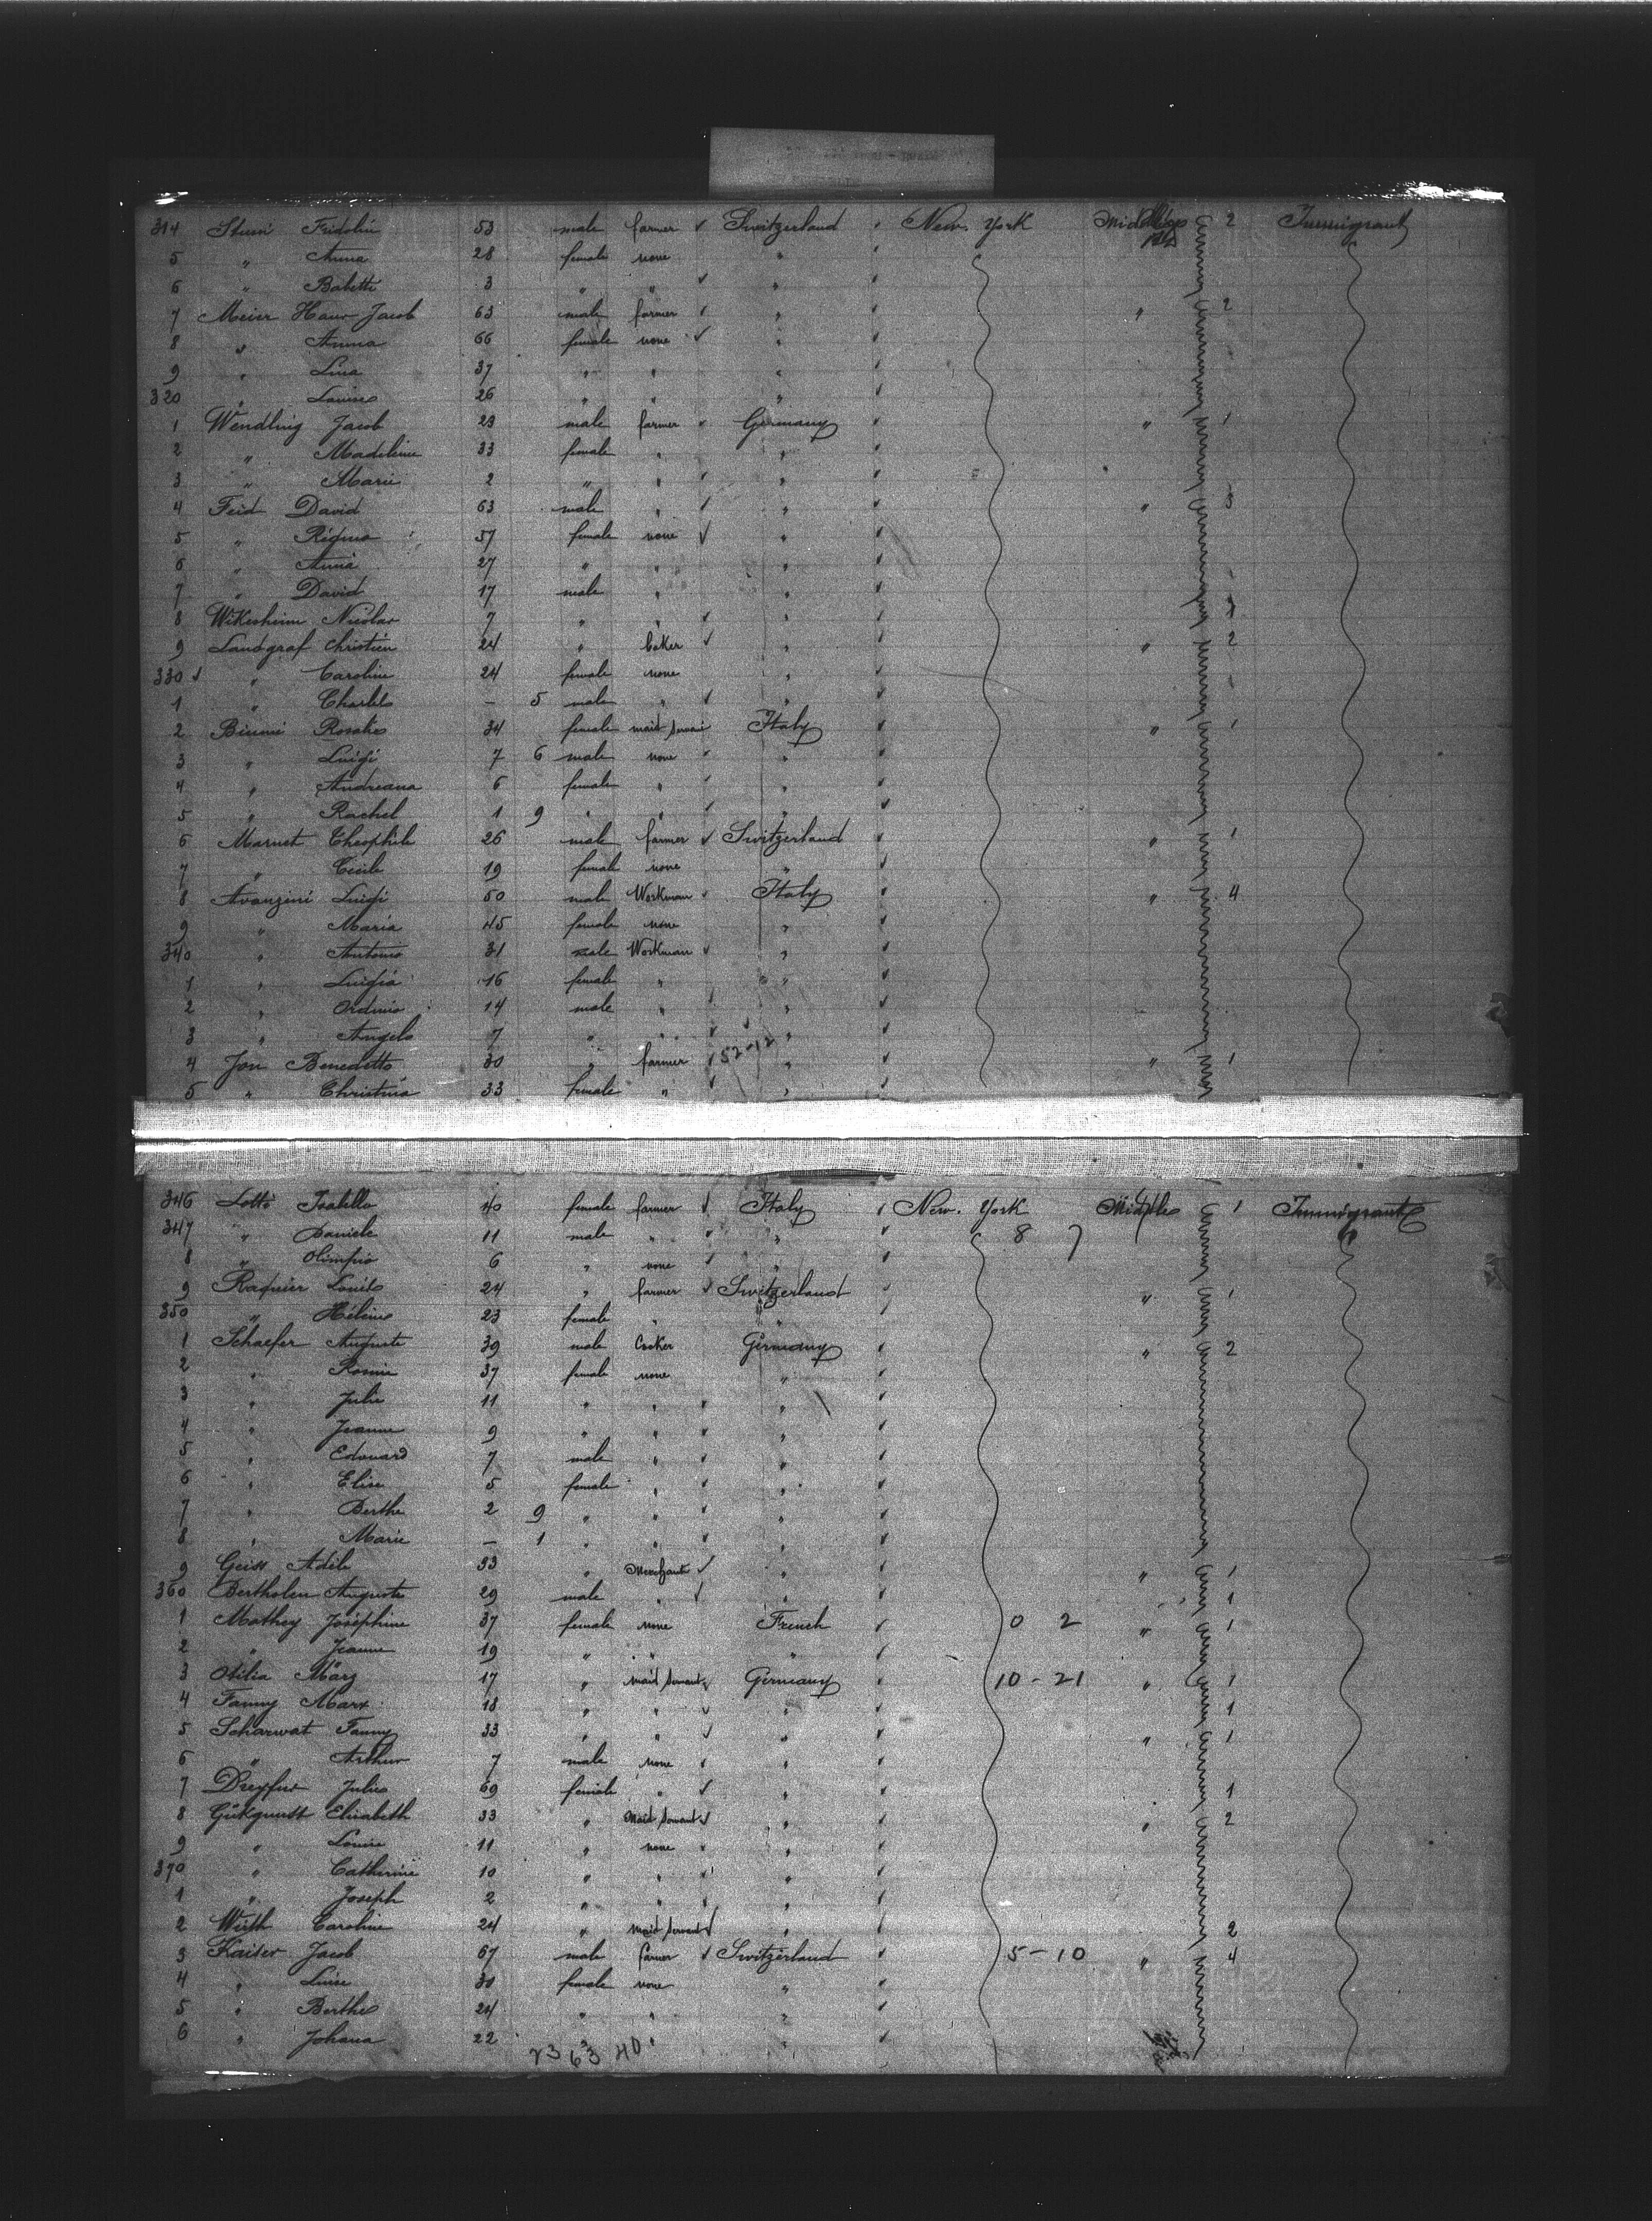 314 Fridolin 53 male farmer Switzerland New. York Middleships 2 Immigrant
5 " Anna 28 female none "
6 " Babette 3 " " "
7 Meier Hans Jacob 63 male farmer " " 2
8 " Anna 66 female none "
9 " Lina 37 " " "
320 " Louise 26 " " "
1 Wendling Jacob 29 male farmer Germany " 1
2 " Madeleine 33 female " "
3 " Marie 2 " " "
4 Feid David 63 male " " " 3
5 " Régina 57 female none "
6 " Anna 27 " " "
7 " David 17 male " "
8 Nicolas 7 " " " 1
9 Landgraf Christien 24 " baker " " 2
330 " Caroline 24 female none "
1 " Charles - 5 male " "
2 Rosalie 34 female maid servant Italy " 1
3 " Luigi 7 6 male none "
4 " Andreana 6 female " "
5 " Rachel 1 9 " " "
6 Marnet Theophile 26 male farmer Switzerland " 1
7 " Cécile 19 female none "
8 Avanzini Luigi 50 male Workman Italy " 4
9 " Maria 45 female none "
340 " Antonio 31 male Workman "
1 " Luigia 16 female " "
2 " Ordinio 14 male " "
3 " Angelo 7 " " "
4 Jon Benedetto 30 " farmer 52-12 " " 1
5 " Christina 33 female " "
346 Lotto Isabella 40 female farmer Italy New. York Middle 1 Immigrant
347 " Daniele 11 male " " 8 7
8 " Olimpio 6 " none "
9 Raquier Louis 24 " farmer Switzerland " 1
350 " Hélène 23 female " "
1 Schaefer Auguste 39 male Cooker Germany " 2
2 " Rosine 37 female none "
3 " Julie 11 " " "
4 " Jeanne 9 " " "
5 " Edouard 7 male " "
6 " Elise 5 female " "
7 " Berthe 2 9 " " "
8 " Marie - 1 " " "
9 Geiss Adèle 33 " Merchant " " 1
360 Bertholen Auguste 29 male " " " 1
1 Mathey Joséphine 37 female none French 0 2 " 1
2 " Jeanne 19 " " "
3 Otilia März 17 " maid servant Germany 10-21 " 1
4 Fanny Marx 18 " " " 1
5 Scharwat Fanny 33 " " " " 1
6 " Arthur 7 male none "
7 Dreyfus Julie 69 female " " 1
8 Elisabeth 33 " maid servant " " 2
9 " Louise 11 " none "
370 " Catherine 10 " " "
1 " Joseph 2 " " "
2 Wirth Caroline 24 " maid servant " 2
3 Kaiser Jacob 67 male farmer Switzerland 5-10 " 4
4 " Luise 30 female none "
5 " Berthe 24 " " "
6 " Johana 22 " "
23 63 40